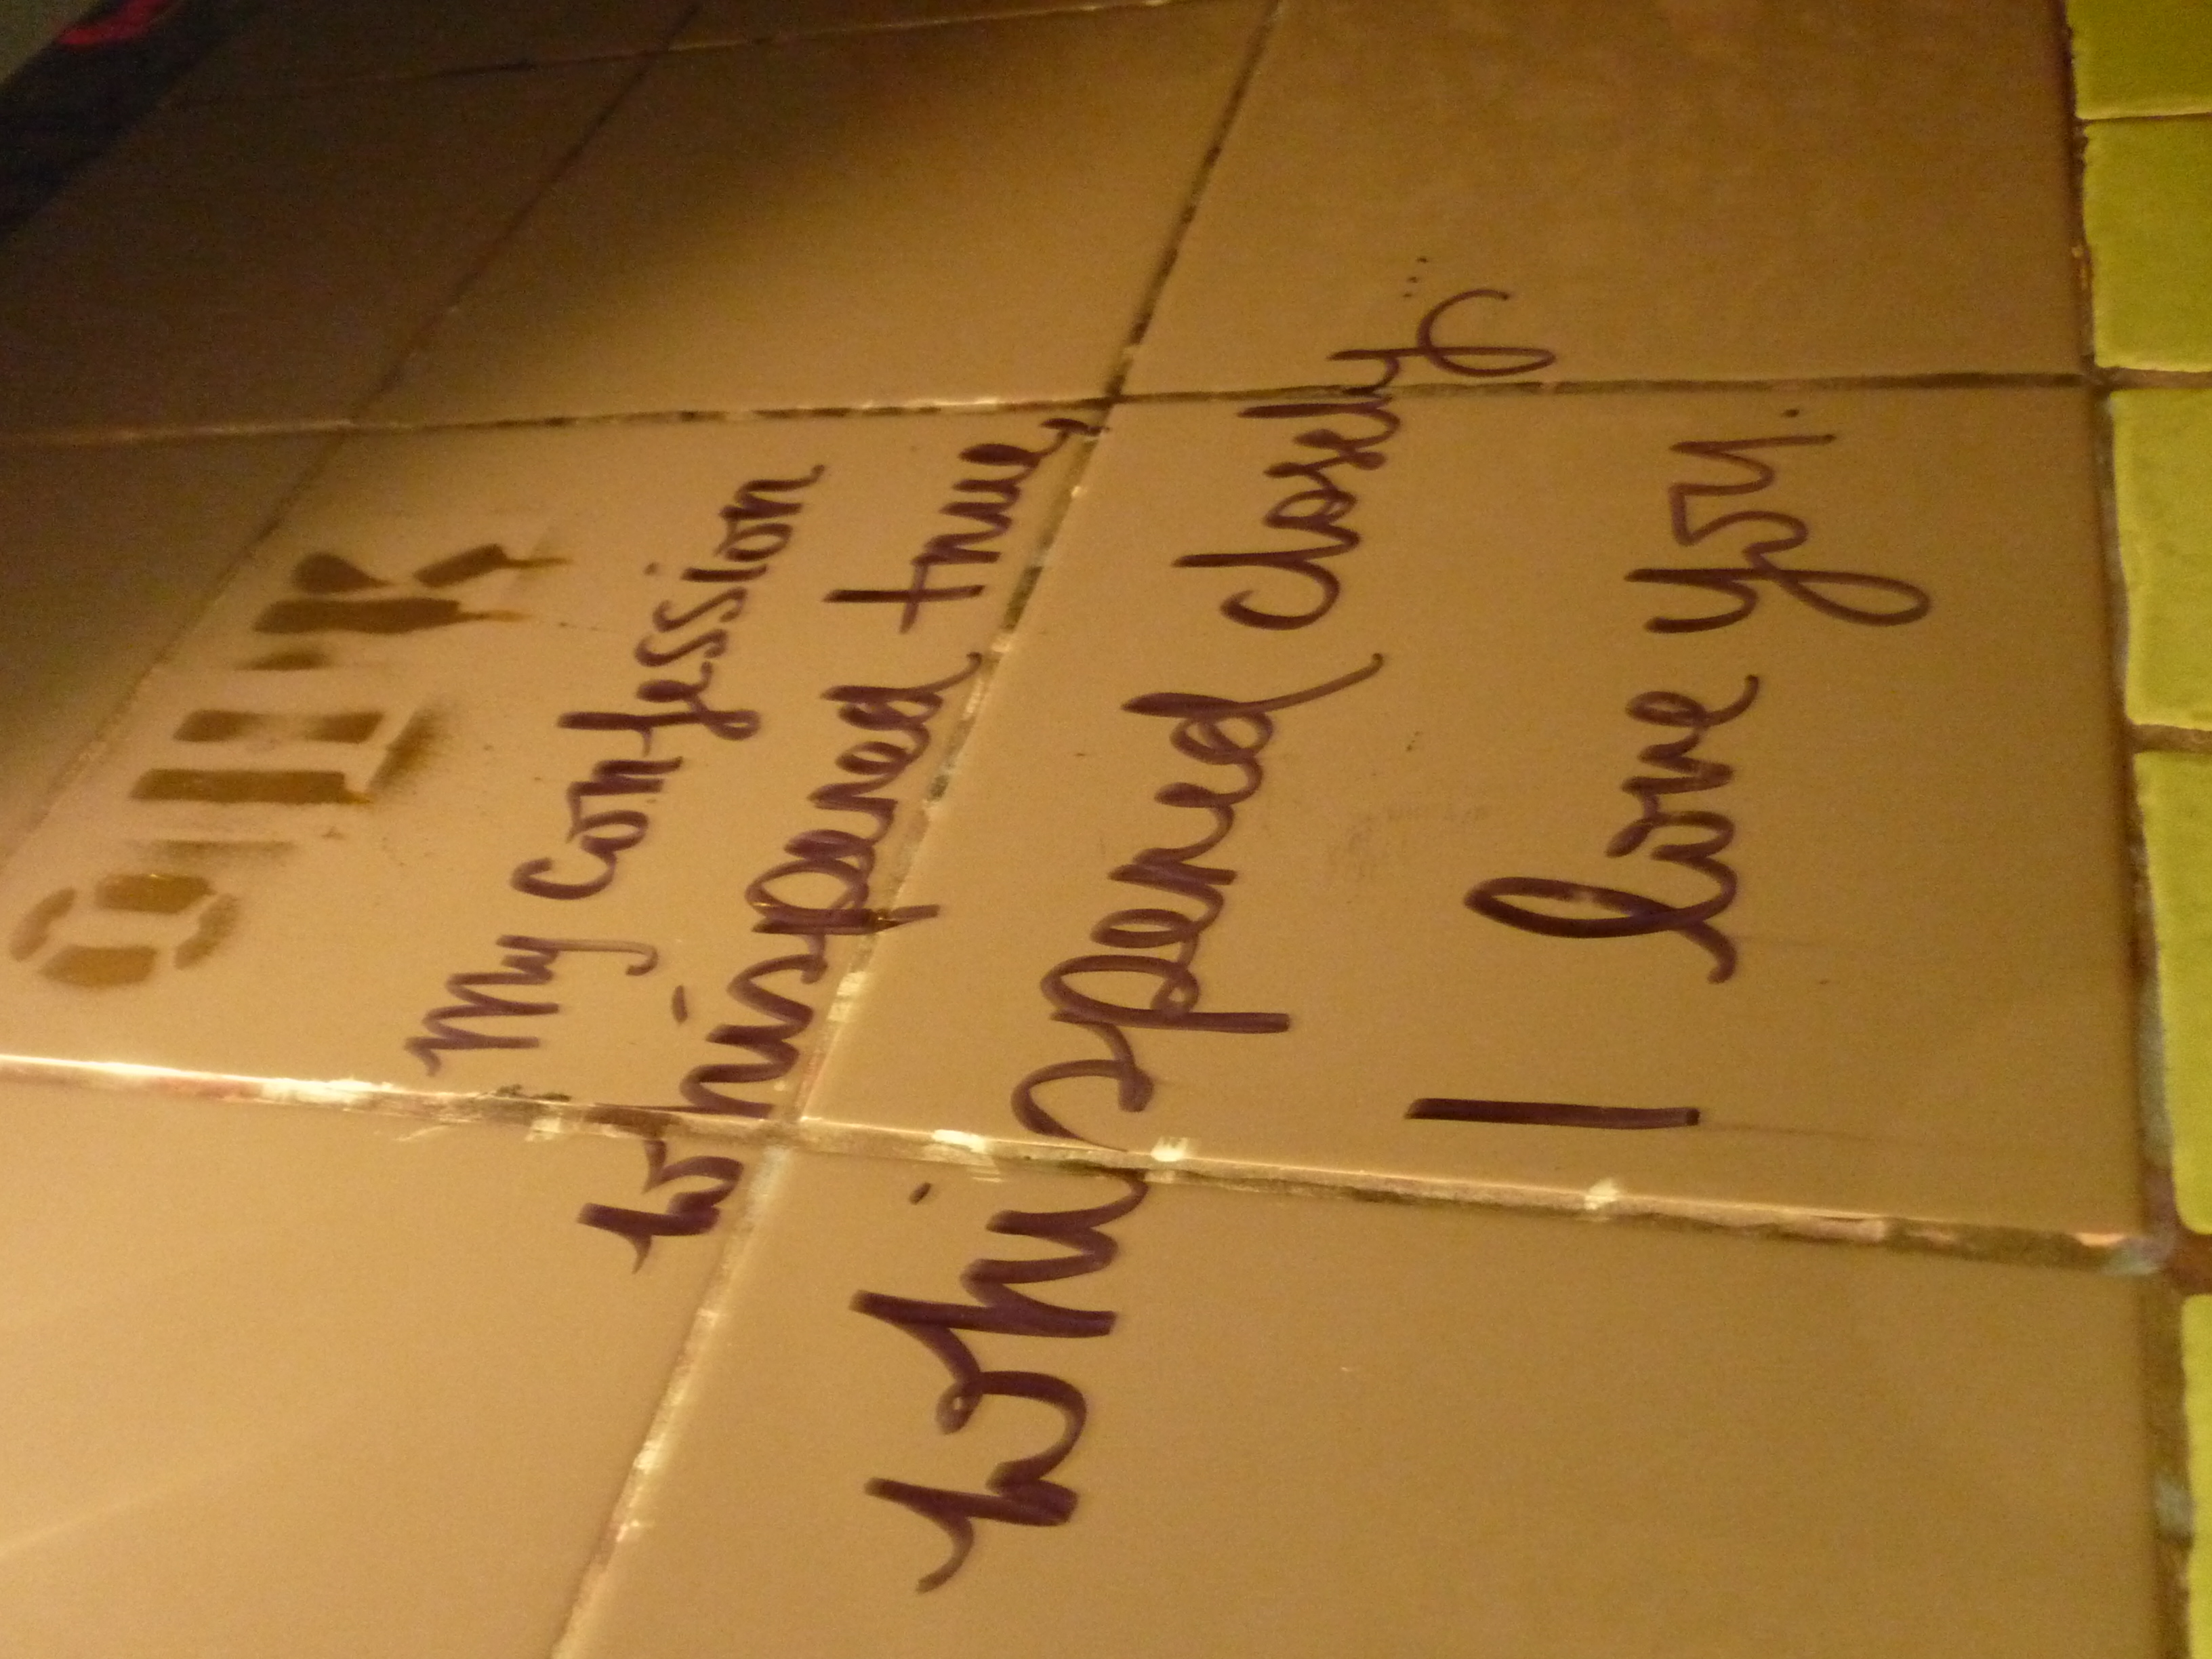 My confession
whispered true,
whispered closely...
I love you.